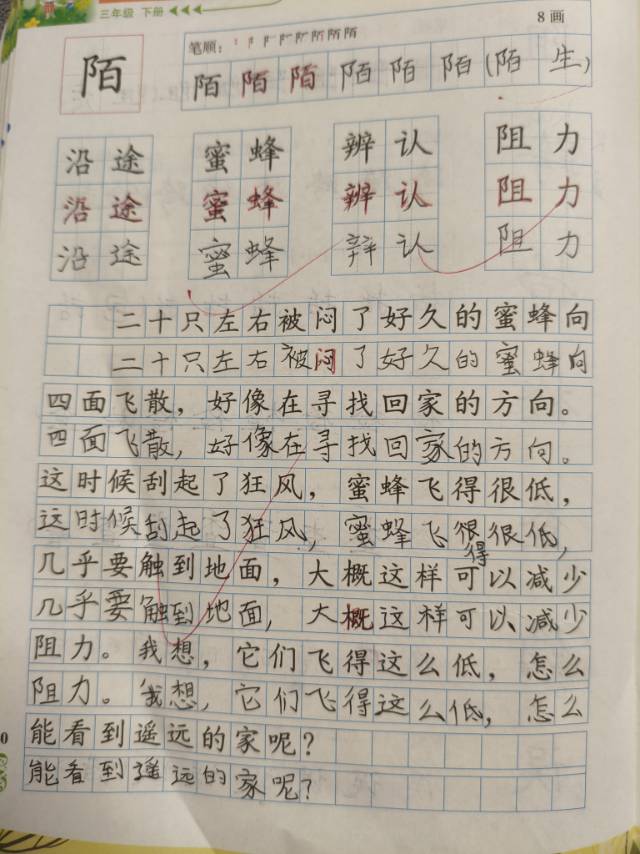 三年级 下册
8画
陌 笔顺：
陌 陌 陌 陌 陌 陌 (陌 生)
沿途 蜜蜂 辨认 阻力
沿途 蜜蜂 辨认 阻力
沿途 蜜蜂 辩认 阻力
二十只左右被闷了好久的蜜蜂向
二十只左右被闷了好久的蜜蜂向
四面飞散，好像在寻找回家的方向。
四面飞散，好像在寻找回家的方向。
这时候刮起了狂风，蜜蜂飞得很低，
这时候刮起了狂风，蜜蜂飞很很低，
得
几乎要触到地面，大概这样可以减少
几乎要触到地面，大概这样可以减少
阻力。我想，它们飞得这么低，怎么
阻力。我想，它们飞得这么低，怎么
能看到遥远的家呢？
能看到遥远的家呢？